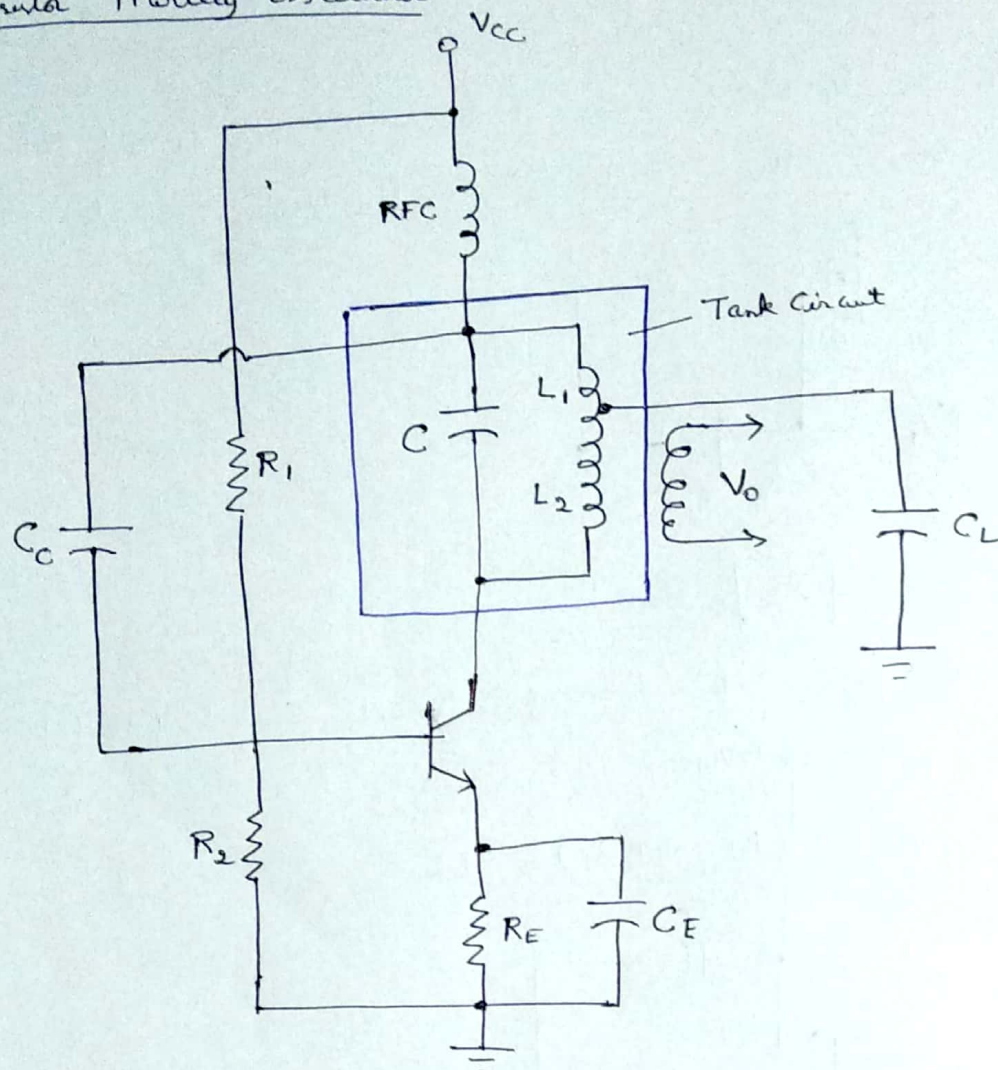 VCC
RFC
Tank Circuit
L1
C
R1
L2
Vo
CC
CL
R2
RE
CE